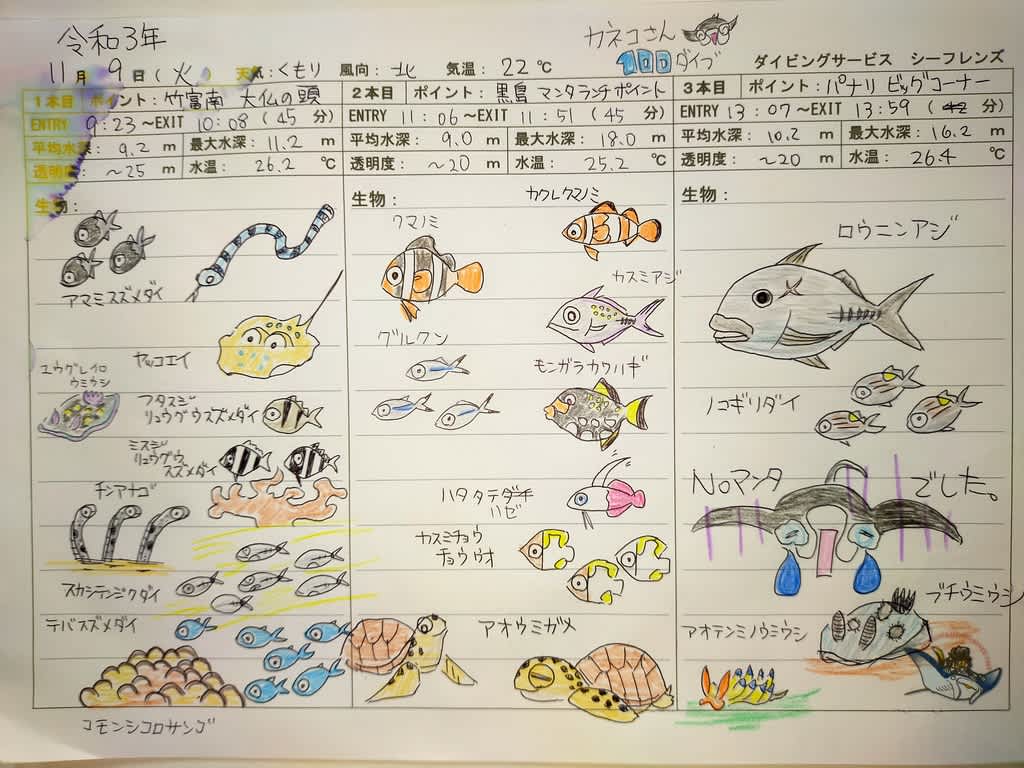 令和3年
カネコさん
100ダイブ
11月 9日(火) 天気:くもり 風向:北 気温:22℃ ダイビングサービス シーフレンズ
1本目 ポイント:竹富南 大仏の頭
ENTRY 9:23~EXIT 10:08 (45 分)
平均水深: 9.2 m 最大水深: 11.2 m
透明度: ~25 m 水温: 26.2 ℃
生物:
アマミスズメダイ
ヤッコエイ
ユウグレイロ
ウミウシ
フタスジ
リュウグウスズメダイ
ミスジ
リュウグウ
スズメダイ
チンアナゴ
スカシテンジクダイ
デバスズメダイ
コモンシコロサンゴ
2本目 ポイント:黒島 マンタランチポイント
ENTRY 11:06~EXIT 11:51 (45 分)
平均水深: 9.0 m 最大水深: 18.0 m
透明度: ~20 m 水温: 25.2 ℃
生物:
カクレクマノミ
クマノミ
カスミアジ
グルクン
モンガラカワハギ
ハタタテ
ハゼ
カスミチョウ
チョウウオ
アオウミガメ
3本目 ポイント:パナリ ビッグコーナー
ENTRY 13:07~EXIT 13:59 (42 分)
平均水深: 10.2 m 最大水深: 16.2 m
透明度: ~20 m 水温: 26.4 ℃
生物:
ロウニンアジ
ノコギリダイ
Noマンタ でした。
ブチウミウシ
アオテンミノウミウシ